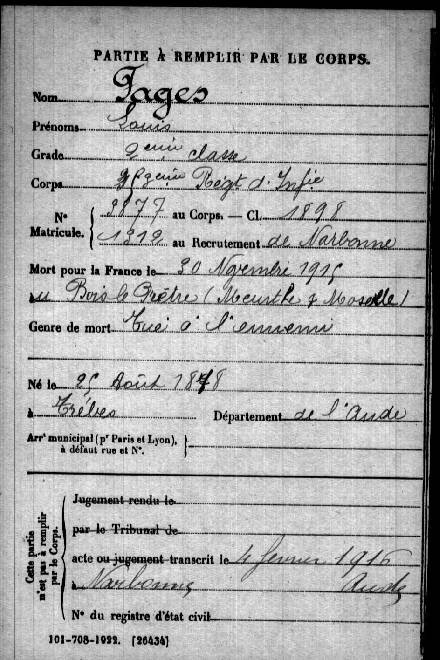 PARTIE À REMPLIR PAR LE CORPS.
Nom Pages
Prénoms Louis
Grade 2eme classe
Corps Régt d'Infie
Nos Matricule.
3877 au Corps. — Cl. 1898
1312 au Recrutement de Narbonne
Mort pour la France le 30 Novembre 1915
au Bois le Prêtre (Meurthe & Moselle)
Genre de mort Tué à l'ennemi
Né le 25 Août 1878
à Trèbes Département de l'Aude
Arrt municipal (pr Paris et Lyon),
à défaut rue et No.
Cette partie n'est pas à remplir par le Corps.
Jugement rendu le
par le Tribunal de
acte ou jugement transcrit le 4 février 1916
à Narbonne Aude
No du registre d'état civil
101-708-1922. [26434]